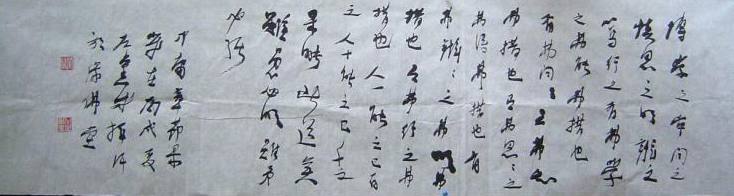 博學之審問之
慎思之明辨之
篤行之有弗學
之弗能弗措也
有弗問之弗知
弗措也有弗思之
弗得弗措也有
弗辨之弗明弗
措也有弗行之弗
措也人一能之己百
之人十能之己千之
果能此道矣
雖愚必明雖柔
必强
中庸
歲在丙戌夏